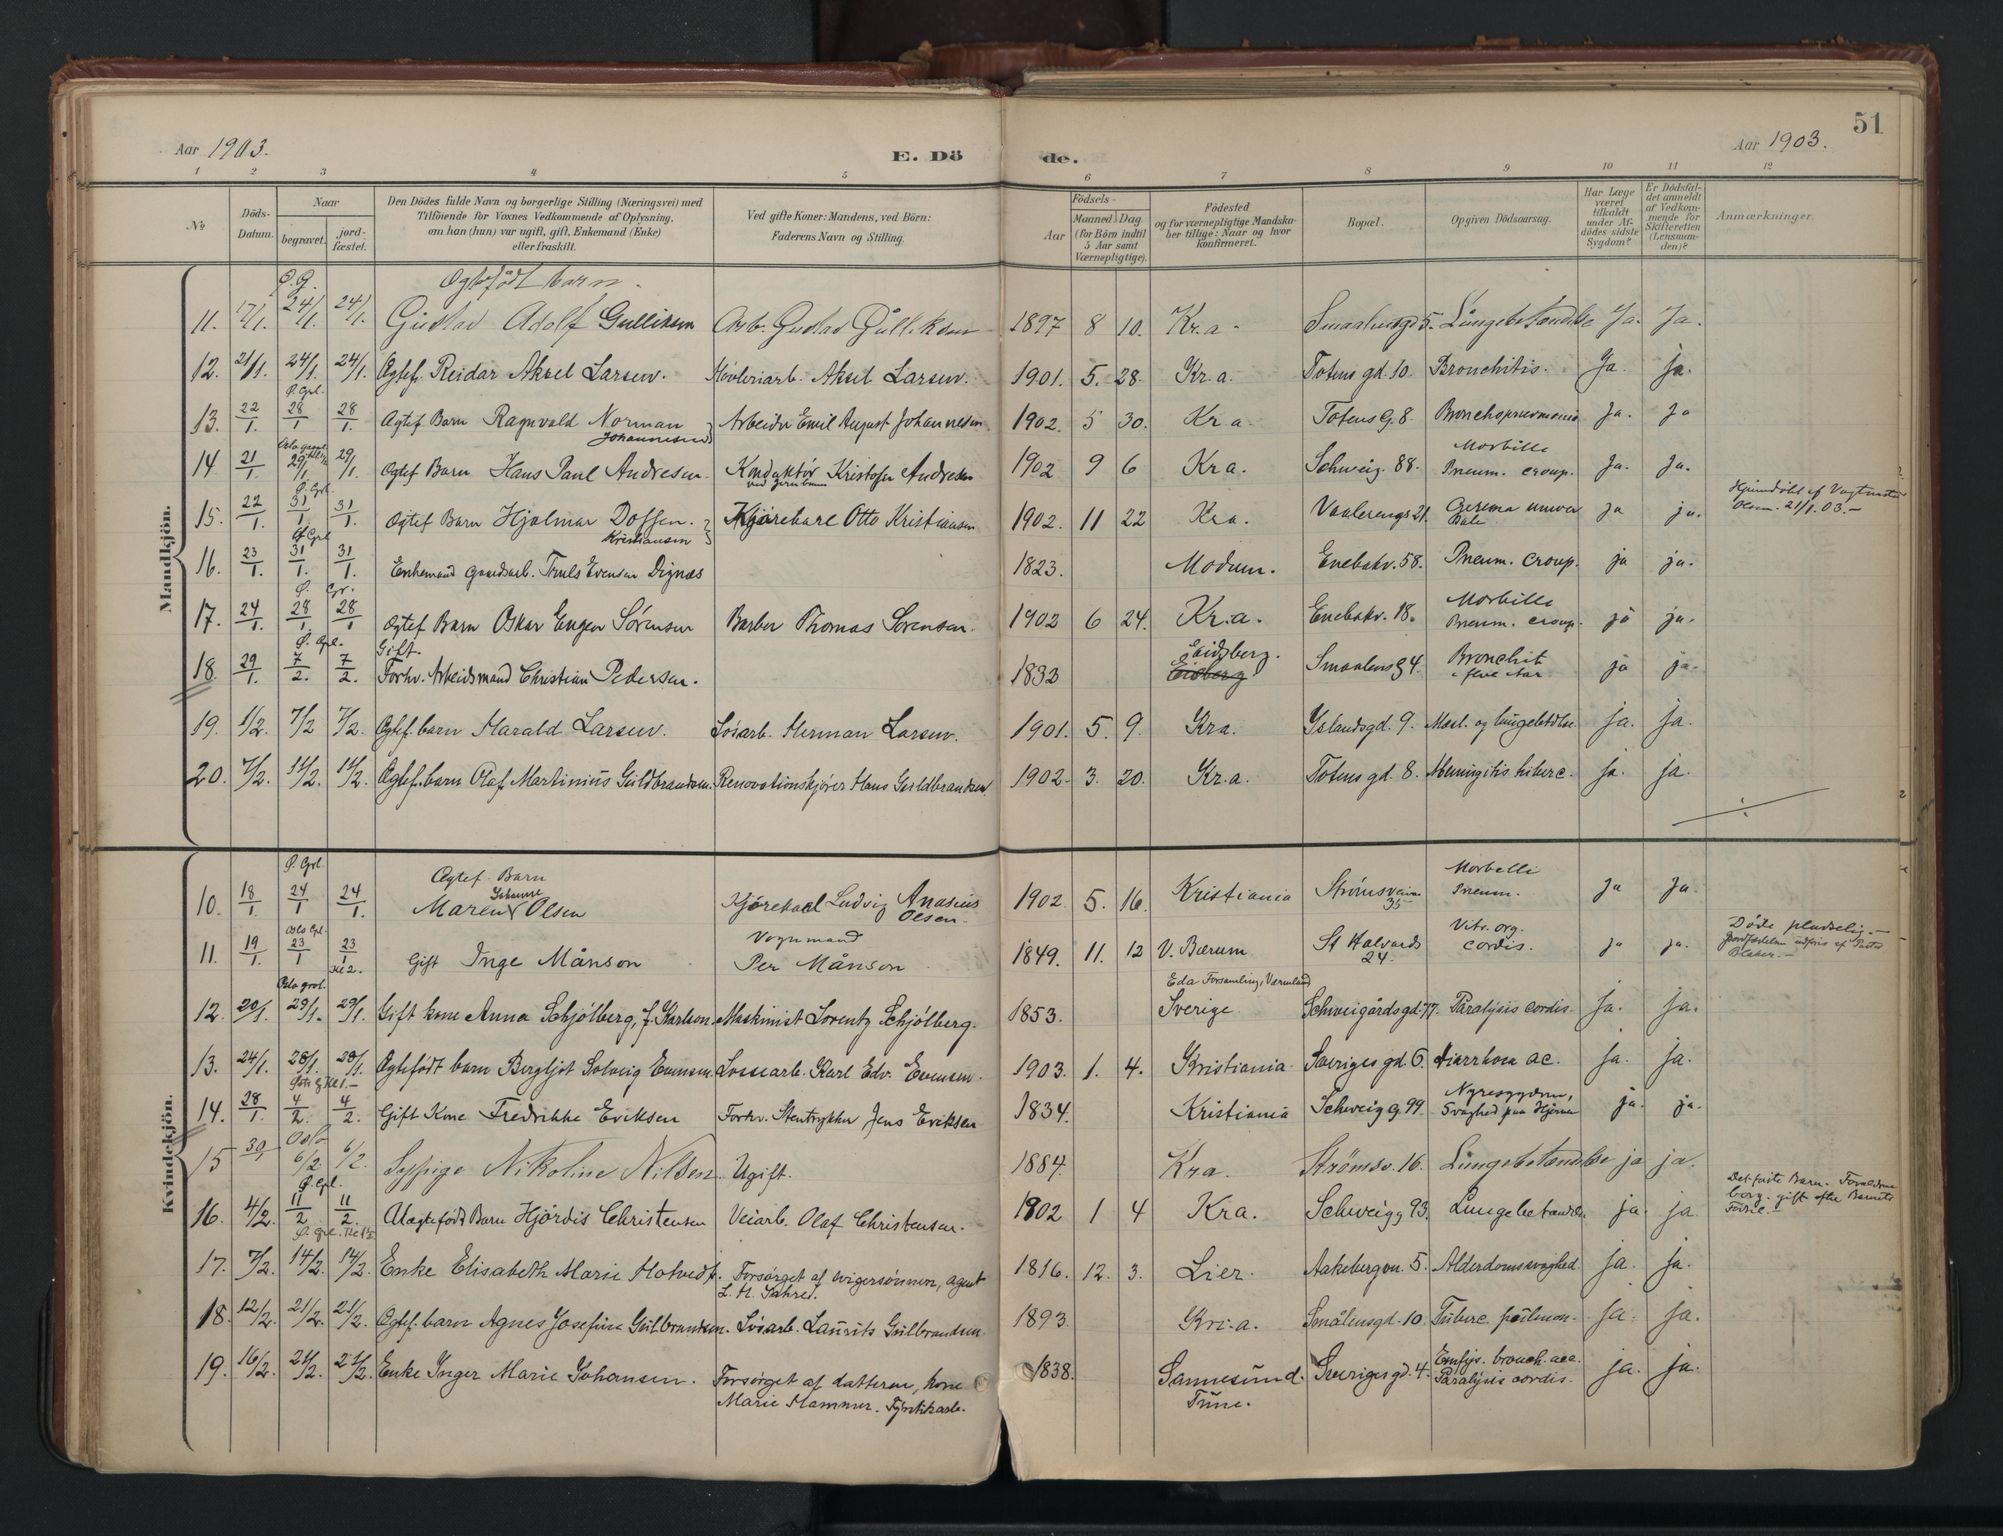 51
Aar 1903.
E. Dö de.
Aar 1903.
1 2 3 4 5 6 7 8 9 10 11 12
№
Döds-Datum.
Naar
begravet.
jord-fæstet.
Den Dödes fulde Navn og borgerlige Stilling (Næringsvei) med Tilföiende for Voxnes Vedkommende af Oplysning, om han (hun) var ugift, gift, Enkemand (Enke) eller fraskilt.
Ved gifte Koner: Mandens, ved Börn: Faderens Navn og Stilling.
Födsels-
Aar
Maaned Dag
(for Börn indtil 5 Aar samt Værnepligtige).
Födested og for værnepligtige Mandskaber tillige: Naar og hvor konfirmeret.
Bopæl.
Opgiven Dödsaarsag.
Har Læge været tilkaldt under Afdödes sidste Sygdom?
Er Dödsfaldet anmeldt af Vedkommende for Skifteretten (Lensmanden)?
Anmærkninger.
Mandkjön.
Ø. G. Ægtefødt barn.
11. 17/1. 24/1. 24/1. Gustav Adolf Gulliksen Arb. Gustav Gulliksen 1897 8 10. Kr.a. Smaalensgd 5. Lungebetændelse Ja. Ja.
12. 21/1. 24/1. 24/1. Ægtef. Reidar Aksel Larsen. Høvleriarb. Aksel Larsen. 1901. 5. 28. Kr.a. Totens gd. 10. Bronchitis. Ja. ja.
Ø. Grl.
13. 22/1. 28/1 28/1. Ægtef Barn Ragnvald Norman Johannesen Arbeider Emil August Johannesen 1902. 5 30. Kr.a. Totens G. 8 Bronchopneumonie Ja. Ja
14. 21/1 29/1 29/1. Ægtef Barn Hans Paul Andresen. Konduktør ved jernbanen Kristoffer Andresen 1902 9 6 Kra. Schweig. 88. Morbilli Pneum. croup. Ja. Ja.
Ø. Grl.
15. 22/1. 31/1 31/1. Ægtef Barn Hjalmar Doffen. Kristiansen Kjørekarl Otto Kristiansen 1902. 11 22 Kra. Vaalerengs 21. ja ja. 21/1.03.–
Ø Grl
16. 23/1. 31/1. 31/1. Enkemand Gaardsarb. Truls Evensen Dignæs 1823. Modum. Enebakv. 58. Pneum. croup. ja ja.
Ø. Gr.
17. 24/1. 28/1 28/1 Ægtef Barn Oskar Eugen Sørensen Barber Thomas Sørensen. 1902 6 24. Kr.a. Enebakv. 18. Morbilli Pneum. croup. ja ja.
Ø. Grl. Gift.
18. 29/1. 7/2. 7/2. Forhv. Arbeidsmand Christian Pedersen. 1833 Eidsberg. Smaalens G 4. Bronchit ja ja.
19. 1/2. 7/2 7/2. Ægtef. barn Harald Larsen. Løsarb. Herman Larsen. 1901. 5. 9. Kra. Islandsgd. 9. Mæsl. og lungebetdlse. ja. ja.
20. 7/2. 14/2. 14/2. Ægtef. barn Olaf Martinius Guldbrandsen. Renovationskjører Hans Guldbrandsen. 1902. 3. 20. Kr.a. Totens gd. 8. Meningitis tuberc. ja. ja.
Kvindekjön.
Ø. Grl. Ægtef. Barn
10. 18/1. 24/1 24/1. Maren Johanne Olsen Kjørekarl Ludvig Anasius Olsen. 1902. 5. 16. Kristiania Strømsveien 35 Morbilli Pneum. ja Ja.
11. 19/1. 23/1 23/1 Kl 2. Gift Inge Månson Vognmand Per Månson 1849. 11. 12 V. Bærum St Halvards 24. Vitr. org. cordis. ja ja. Døde pludselig.–
Oslo grvl. Eda Forsamling, Värmland
12. 20/1. 29/1. 29/1. Gift kone Anna Schjølberg, f. Karlson. Maskinist Lorentz Schjølberg. 1853. Sverige. Schweigårdsgd. 77. Paralysis cordis. Ja. Ja.
13. 24/1. 28/1. 28/1. Ægtefødt barn Bergljot Solveig Evensen. Lossearb. Karl Edv. Evensen. 1903. 1. 4. Kristiania. Sveriges gd. 6. Diarrhoea ac. ja. ja.
14. 28/1 4/2. 4/2. Gift Kone Fredrikke Eriksen Forhv. Stentrykker Jens Eriksen 1834. Kristiania Schweig G 99. Nyresygdom, Svaghed paa Hjerne ja. ja.
Oslo
15 30/1 6/2. 6/2. Sypige Nikoline Nilsen. Ugift. 1884. Kra. Strømsv. 16. Lungebetændelse ja ja.
Ø. Grl.
16. 4/2. 11/2 11/2. Uægtefødt Barn Hjørdis Christensen Veiarb. Olaf Christensen. 1902 1 4 Kra. Schweigg 93. Lungebetændelse ja. ja Det første Barn. Forældrene borg. gift efter Barnets Fødsel.–
17. 7/2. 14/2. 14/2. Enke Elisabeth Marie Hotvedt. Forsørget af svigersønnen, agent 1816. 12. 3. Lier. Aakebergvn. 5. Alderdomssvaghed. ja. ja.
18. 12/2. 21/2. 21/2. Ægtef. barn Agnes Josefine Gulbrandsen. Løsarb. Laurits Gulbrandsen. 1893. Kr.a. Smålensgd. 10. Tuberc. pulmon. ja. ja.
19. 16/2. 21/2. 21/2. Enke Inger Marie Johansen. Forsørget af datteren, kone Marie Hammer. Fyrstikarb. 1838. Sannesund. Tune. Sveriges gd. 4. Emfys. bronch. acc. Paralysis cordis. ja. ja.